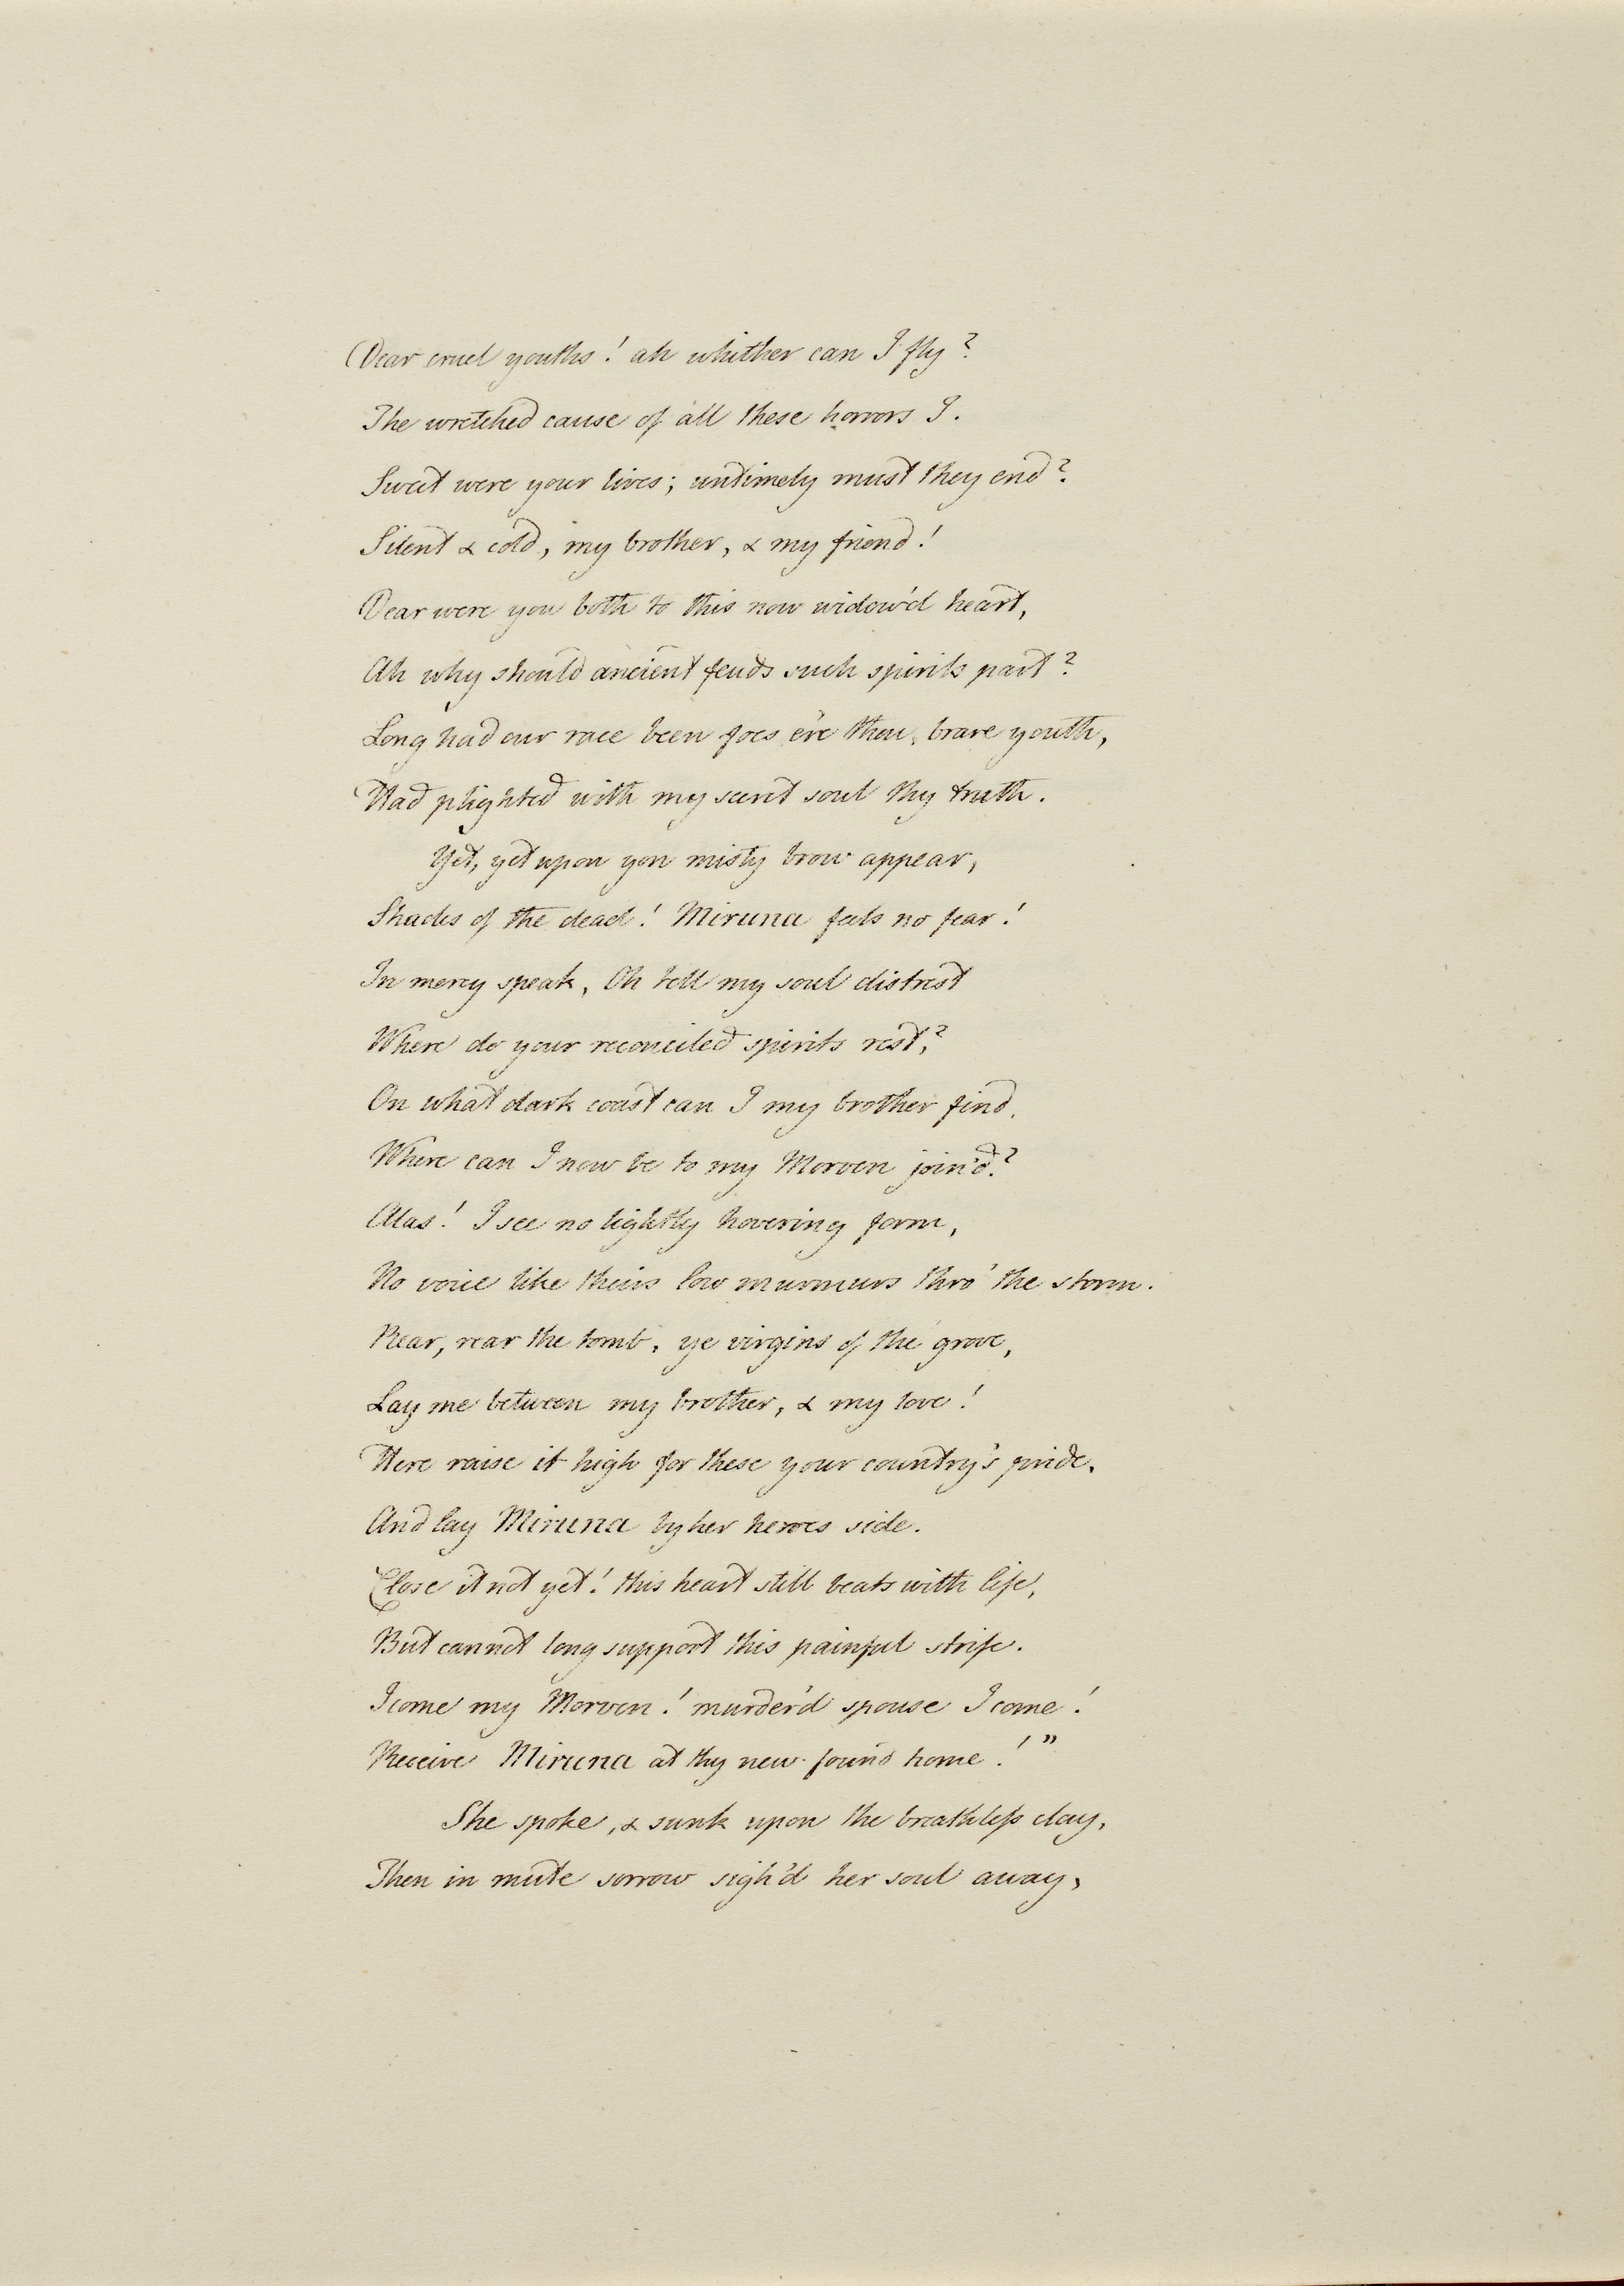 Dear cruel youths! ah whither can I fly?
The wretched cause of all these horrors I.
Sweet were your lives; untimely must they end?
Silent & cold, my brother, & my friend!
Dear were you both to this now widow'd heart,
Ah why should ancient feuds such spirits part?
Long had our race been foes e're thou, brave youth,
Had plighted with my secret soul thy truth.
Yet, yet upon yon misty brow appear,
Shades of the dead! Miruna feels no fear!
In mercy speak, Oh tell my soul distrest
Where do your reconciled spirits rest,?
On what dark coast can I my brother find,
Where can I now be to my Morven join'd?
Alas! I see no lightly hovering form,
No voice like theirs low murmurs thro' the storm.
Rear, rear the tomb, ye virgins of the grove,
Lay me between my brother, & my love!
Here raise it high for these your country's pride,
And lay Miruna by her heroes side.
Close it not yet! this heart still beats with life,
But cannot long support this painful strife.
I come my Morven! murder'd spouse I come!
Receive Miruna at thy new-found home!"
She spoke, & sunk upon the breathless clay,
Then in mute sorrow sigh'd her soul away,